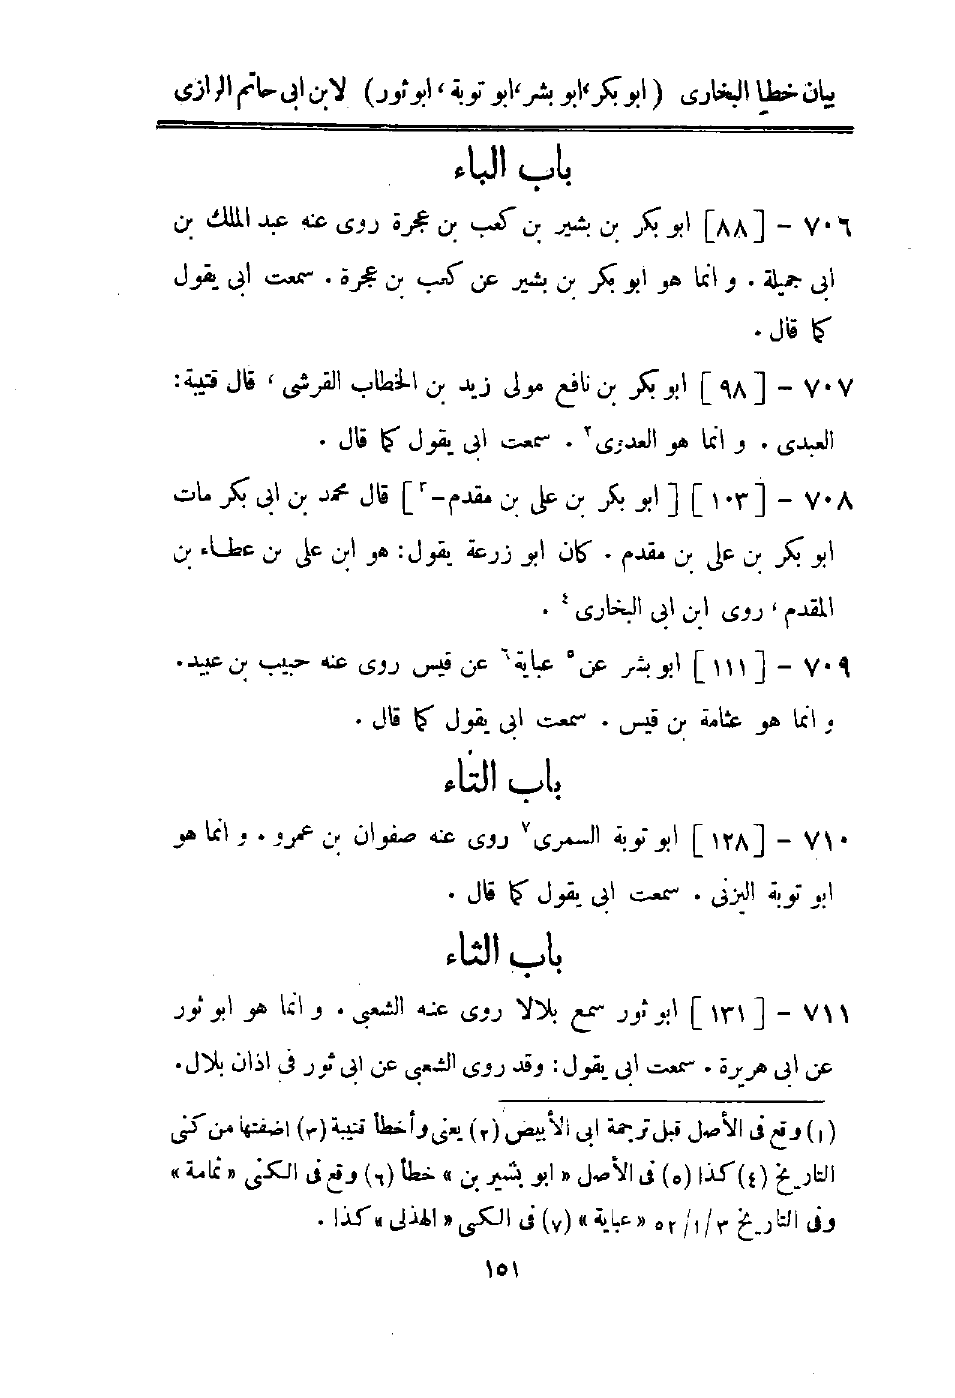 بيان خطا البخارى (ابو بكر، ابو بشر، ابو توبة، ابو ثور) لابن ابى حاتم الرازى
باب الباء
٧٠٦ - [٨٨] ابو بكر بن بشير بن كعب بن عجرة روى عنه عبد الملك بن
ابى جميلة . و انما هو ابو بكر بن بشير عن كعب بن عجرة . سمعت ابى يقول
كما قال .
٧٠٧ - [٩٨] ابو بكر بن نافع مولى زيد بن الخطاب القرشى ، قال قتيبة:
العبدى . و انما هو العدوى٢ . سمعت ابى يقول كما قال .
٧٠٨ - [١٠٣] [ابو بكر بن على بن مقدم-٣] قال محمد بن ابى بكر مات
ابو بكر بن على بن مقدم . كان ابو زرعة يقول: هو ابن على بن عطاء بن
المقدم ، روى ابن ابى البخارى٤ .
٧٠٩ - [١١١] ابو بشر عن٥ عباية٦ عن قيس روى عنه حبيب بن عبيد.
و انما هو عثامة بن قيس . سمعت ابى يقول كما قال .
باب التاء
٧١٠ - [١٢٨] ابو توبة السمرى٧ روى عنه صفوان بن عمرو . و انما هو
ابو توبة اليزنى . سمعت ابى يقول كما قال .
باب الثاء
٧١١ - [١٣١] ابو ثور سمع بلالا روى عنه الشعبى . و انما هو ابو ثور
عن ابى هريرة . سمعت ابى يقول: وقد روى الشعبى عن ابى ثور فى اذان بلال.
(١) وقع فى الأصل قبل ترجمة ابى الأبيض (٢) يعنى وأخطأ قتيبة (٣) اضفتها من كنى
التاريخ (٤) كذا (٥) فى الأصل « ابو بشير بن » خطأ (٦) وقع فى الكنى « ثمامة »
وفى التاريخ ٣/١/٥٢ « عباية » (٧) فى الكنى « الهذلى » كذا .
١٥١